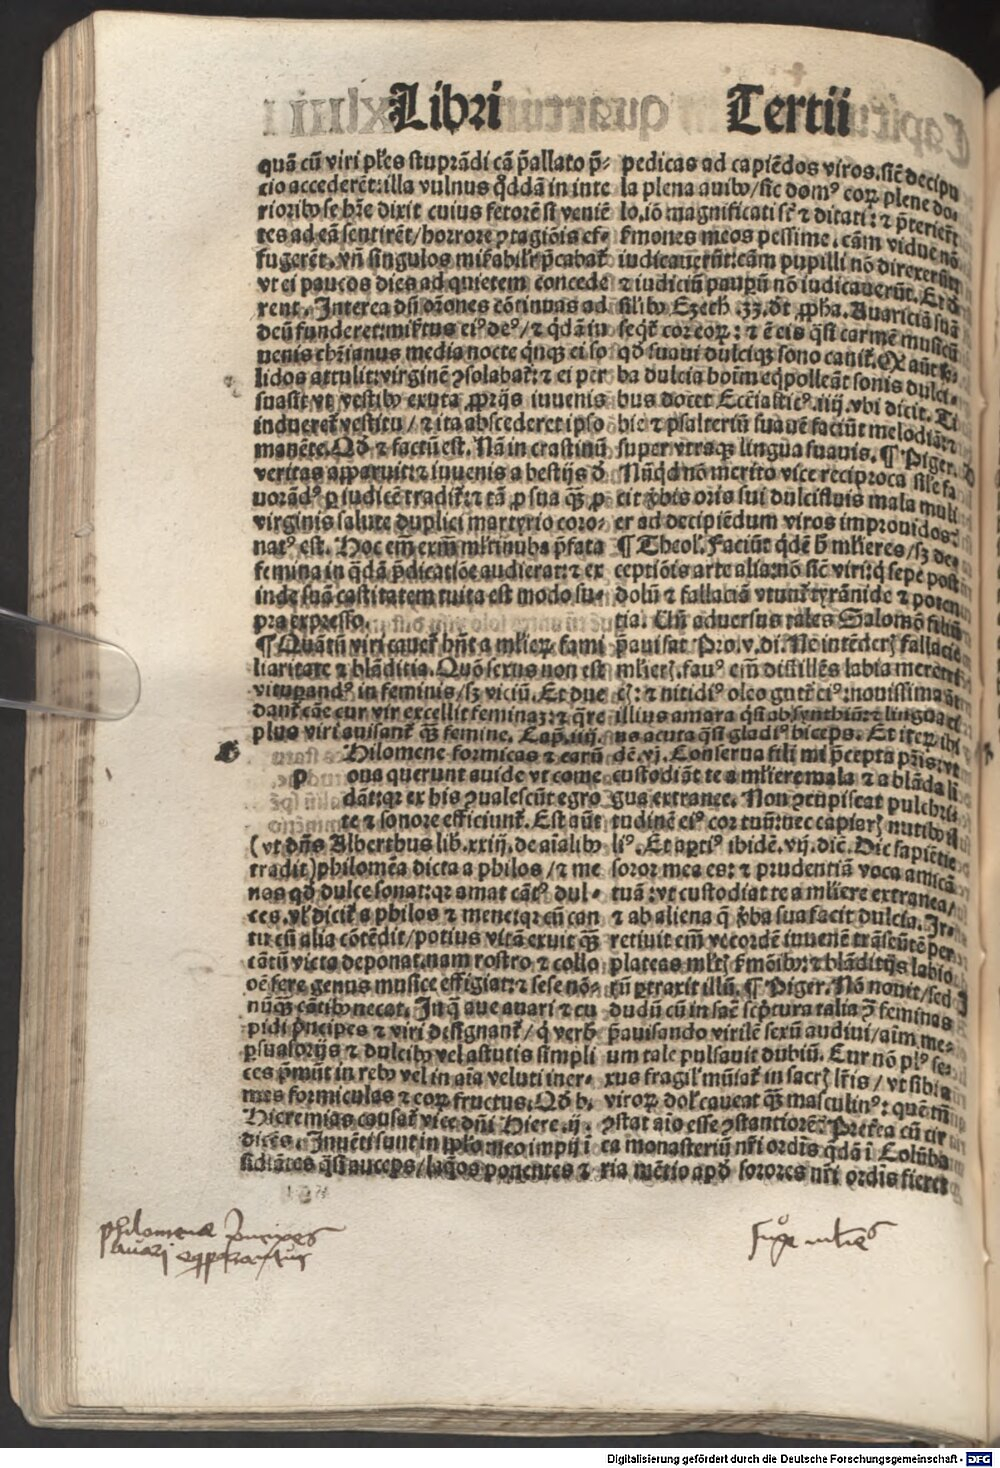 Libri Tertii
quā cū viri ples stuprādi cā p̄allato p̄-
cio accederēt: illa vulnus q̊ddā in inte
riorib⁹ se hr̄e dixit cuius fetorē si veniē
tes ad eā sentirēt / horrore ꝯtagiōis ef-
fugerēt. vn̄ singulos mirabilr̄ p̄cabat᷑
vt ei paucos dies ad quietem concede
rent. Interea dn̄i or̄ones cōtinuas ad
deū funderet: misertus ei⁹ de⁹ / ⁊ q̇dā iu
uenis chr̄ianus media nocte q̇nq̨ ei so
lidos attulit: virginē ꝯsolabat᷑: ⁊ ei per
suasit vt vestib⁹ exuta ꝓprijs iuuenis
indueret᷑ vestitu / ⁊ ita abscederet ipso
manēte. Qd̄ ⁊ factū est. Nā in crastinū
veritas apparuit: ⁊ iuuenis a bestijs d̄
uorād⁹ ꝑ iudicē tradit᷑: ⁊ tā ꝓ sua q̄ꝫ ꝓ
virginis salute duplici martyrio coro-
nat⁹ est. Hoc em̄ exm̄ mr̄i nubs p̄fata
femina in q̄dā p̄dicatiōe audierat: ⁊ ex
inde suā castitatem tuita est modo su-
pra expresso.
¶ Quātū viri cauer᷑ hn̄t a mlierꝝ fami
liaritate ⁊ blāditia. Quō sexus non est
vituꝑand⁹ in feminis / sꝫ viciū. Et due
dant᷑ cāe cur vir excellit feminaꝫ: ⁊ q̄re
plus viri auisant᷑ q̄ꝫ femine. Cap. iiij.
P Hilomene formicas ⁊ earū
oua querunt auide vt come
dāt: qr ex his ꝯualescūt egro
te ⁊ sonore efficiunt᷑. Est aūt
( vt dn̄s Albertus lib. xxiij. de aīalib⁹
tradit) philomēa dicta a philos / ⁊ me
nas qd̄ dulce sonat: qr amat cāt⁹ dul-
ces. vl̓ dicit᷑ s philos ⁊ mene: qr cū can
tu cū alia cōtēdit / potius vitā exuit q̄ꝫ
cātū victa deponat. nam rostro ⁊ collo
oē fere genus musice effigiat: ⁊ sese nō-
nūq̄ꝫ cātib⁹ necat. In q̄ aue auari ⁊ cu
pidi p̄ncipes ⁊ viri designant᷑ / q̇ verb
ꝑsuasorijs ⁊ dulcib⁹ vel astutis simpli
ces p̄mūt in reb⁹ vel in aīa veluti iner-
mes formiculas ⁊ eoꝝ fructus. Qd̄ b.
Hieremias causat᷑ vice dn̄i Hiere. ij.
dicēs. Inuēti sunt in pplo meo impij i
sidiātes q̄si auceps / laq̄os ponentes ⁊
pedicas ad capiēdos viros. sic̄ decipu
la plena auib⁹ / sic dom⁹ eoꝝ plene do-
lo. iō magnificati st̄ ⁊ ditati: ⁊ p̄terier̄t
s̄mones meos pessime. cām vidue nō
iudicauerūt: cām pupilli nō direxerūt
⁊ iudiciū pauꝑū nō iudicauerūt. Et d̄
silib⁹ Ezech. 33. dt̄ ꝓpha. Auariciā suā
seqt᷑ cor eoꝝ: ⁊ ē eis q̄si carmē musicū
qd̄ suaui dulciq̨ sono canit᷑. Ex aūt v̓-
ba dulcia hoīm eq̄polleāt sonis dulci-
bus docet Ecclesiastic⁹. iiij. vbi dicit. Ti
bie ⁊ psalteriū suauē faciūt melodiā: ⁊
super vtraq̨ lingua suauis. ¶ Piger.
Nūqd nō merito vice reciproca sile fa
cit v̓bis oris sui dulcifluis mala muli
er ad decipiēdum viros improuidos:
¶ Theol. Faciūt qdē h̄ mlieres / sꝫ de-
ceptiōis arte alia: nō sic̄ viri: q̇ sepe post
dolū ⁊ fallaciā vtunt᷑ tyrānide ⁊ poten
tia. Cū aduersus tales Salomō filiū
p̄auisat Pro. v. di. Ne intēderꝫ fallacie
mlierꝫ. fau⁹ em̄ distillēs labia meretri-
cꝫ: ⁊ nitidi⁹ oleo gutt᷑ ei⁹: nouissima āt
illius amara q̄si absynthiū: ⁊ lingua ei
us acuta q̄si gladi⁹ biceps. Et iteꝝ ibi
dē. vj. Conserua fili mi p̄cepta pr̄is: vt
custodiāt te a mliere mala ⁊ a blāda li
gua extranee. Non ꝯcupiscat pulchri-
tudinē ei⁹ cor tuū: nec capiarꝫ nutib⁹ il
li⁹. Et aꝑti⁹ ibidē. vij. dicē. Dic sapiētie
soror mea es: ⁊ prudentiā voca amicā
tuā: vt custodiat te a mliere extranea /
⁊ ab aliena q̄ v̓ba sua facit dulcia. Ir-
retiuit em̄ vecordē iuuenē trāseūtē per
plateas mltꝫ s̄mōib⁹: ⁊ blāditijs labio
rū ꝓtraxit illū. ¶ Piger. Nō nouit / sed
dudū cū in sac̄ scptura talia ꝓ feminas
p̄auisando virilē sexū audiui / aīm me-
um tale pulsauit dubiū. Cur nō pl⁹ se-
xus fragil̓ mūiat᷑ in sacrꝫ lr̄is / vt sibi a
viroꝝ dol᷑ caueat q̄ꝫ masculin⁹: quē tn̄
ꝯstat aīo esse ꝯstantiorē? Preterea cū cir
ca monasteriū nr̄i ordīs q̇dā i Colūba
ria mētio apd sorores nr̄i ordīs fieret
philomenæ p̄ncipes
auari eqꝑarantur
fuge mlies
Digitalisierung gefördert durch die Deutsche Forschungsgemeinschaft - DFG